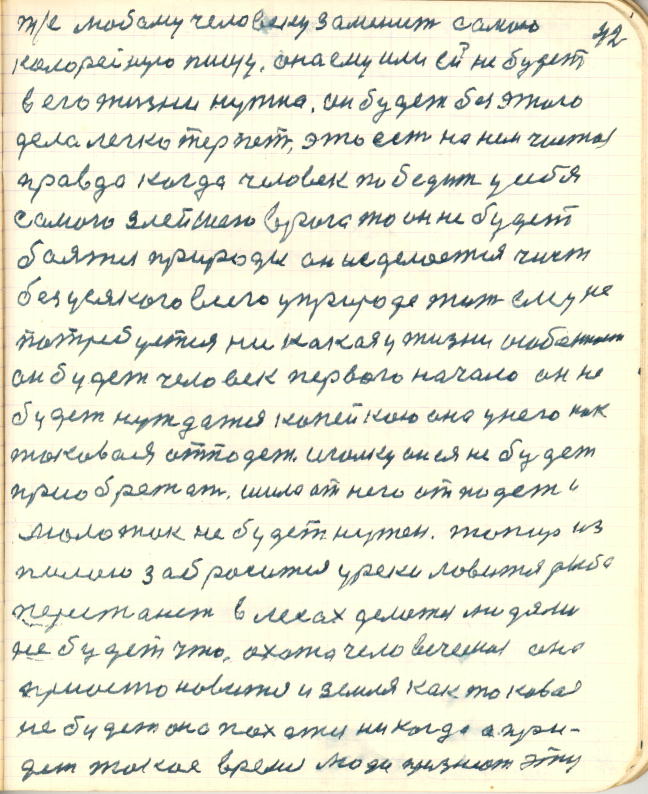 42
т/е любому человеку заменит самою
калорейную пищу, она ему или ей не будет
в его жизни нужна, он будет без этого
дела легко терпет, это ест на нем чистая
правда когда человек победит у себя
самого злейшего врога то он не будет
боятся природы он исделоется чист
без усякого в него у природе тит ему не
потребуется ни какая у жизни
он будет человек первого начало он не
будет нуждатся копейкою она у него как
токовая отподет. иголку он ся не будет
приобретат. шило от него отподет и
молоток не будет нужен. топор из
пилою забросится у реки ловится рыба
перестанет в лесах делатся людями
не будет что, охота человеческая она
приостоновится и земля как токовая
не будет она пахатся никогда а при-
дет токое время люди признают эту